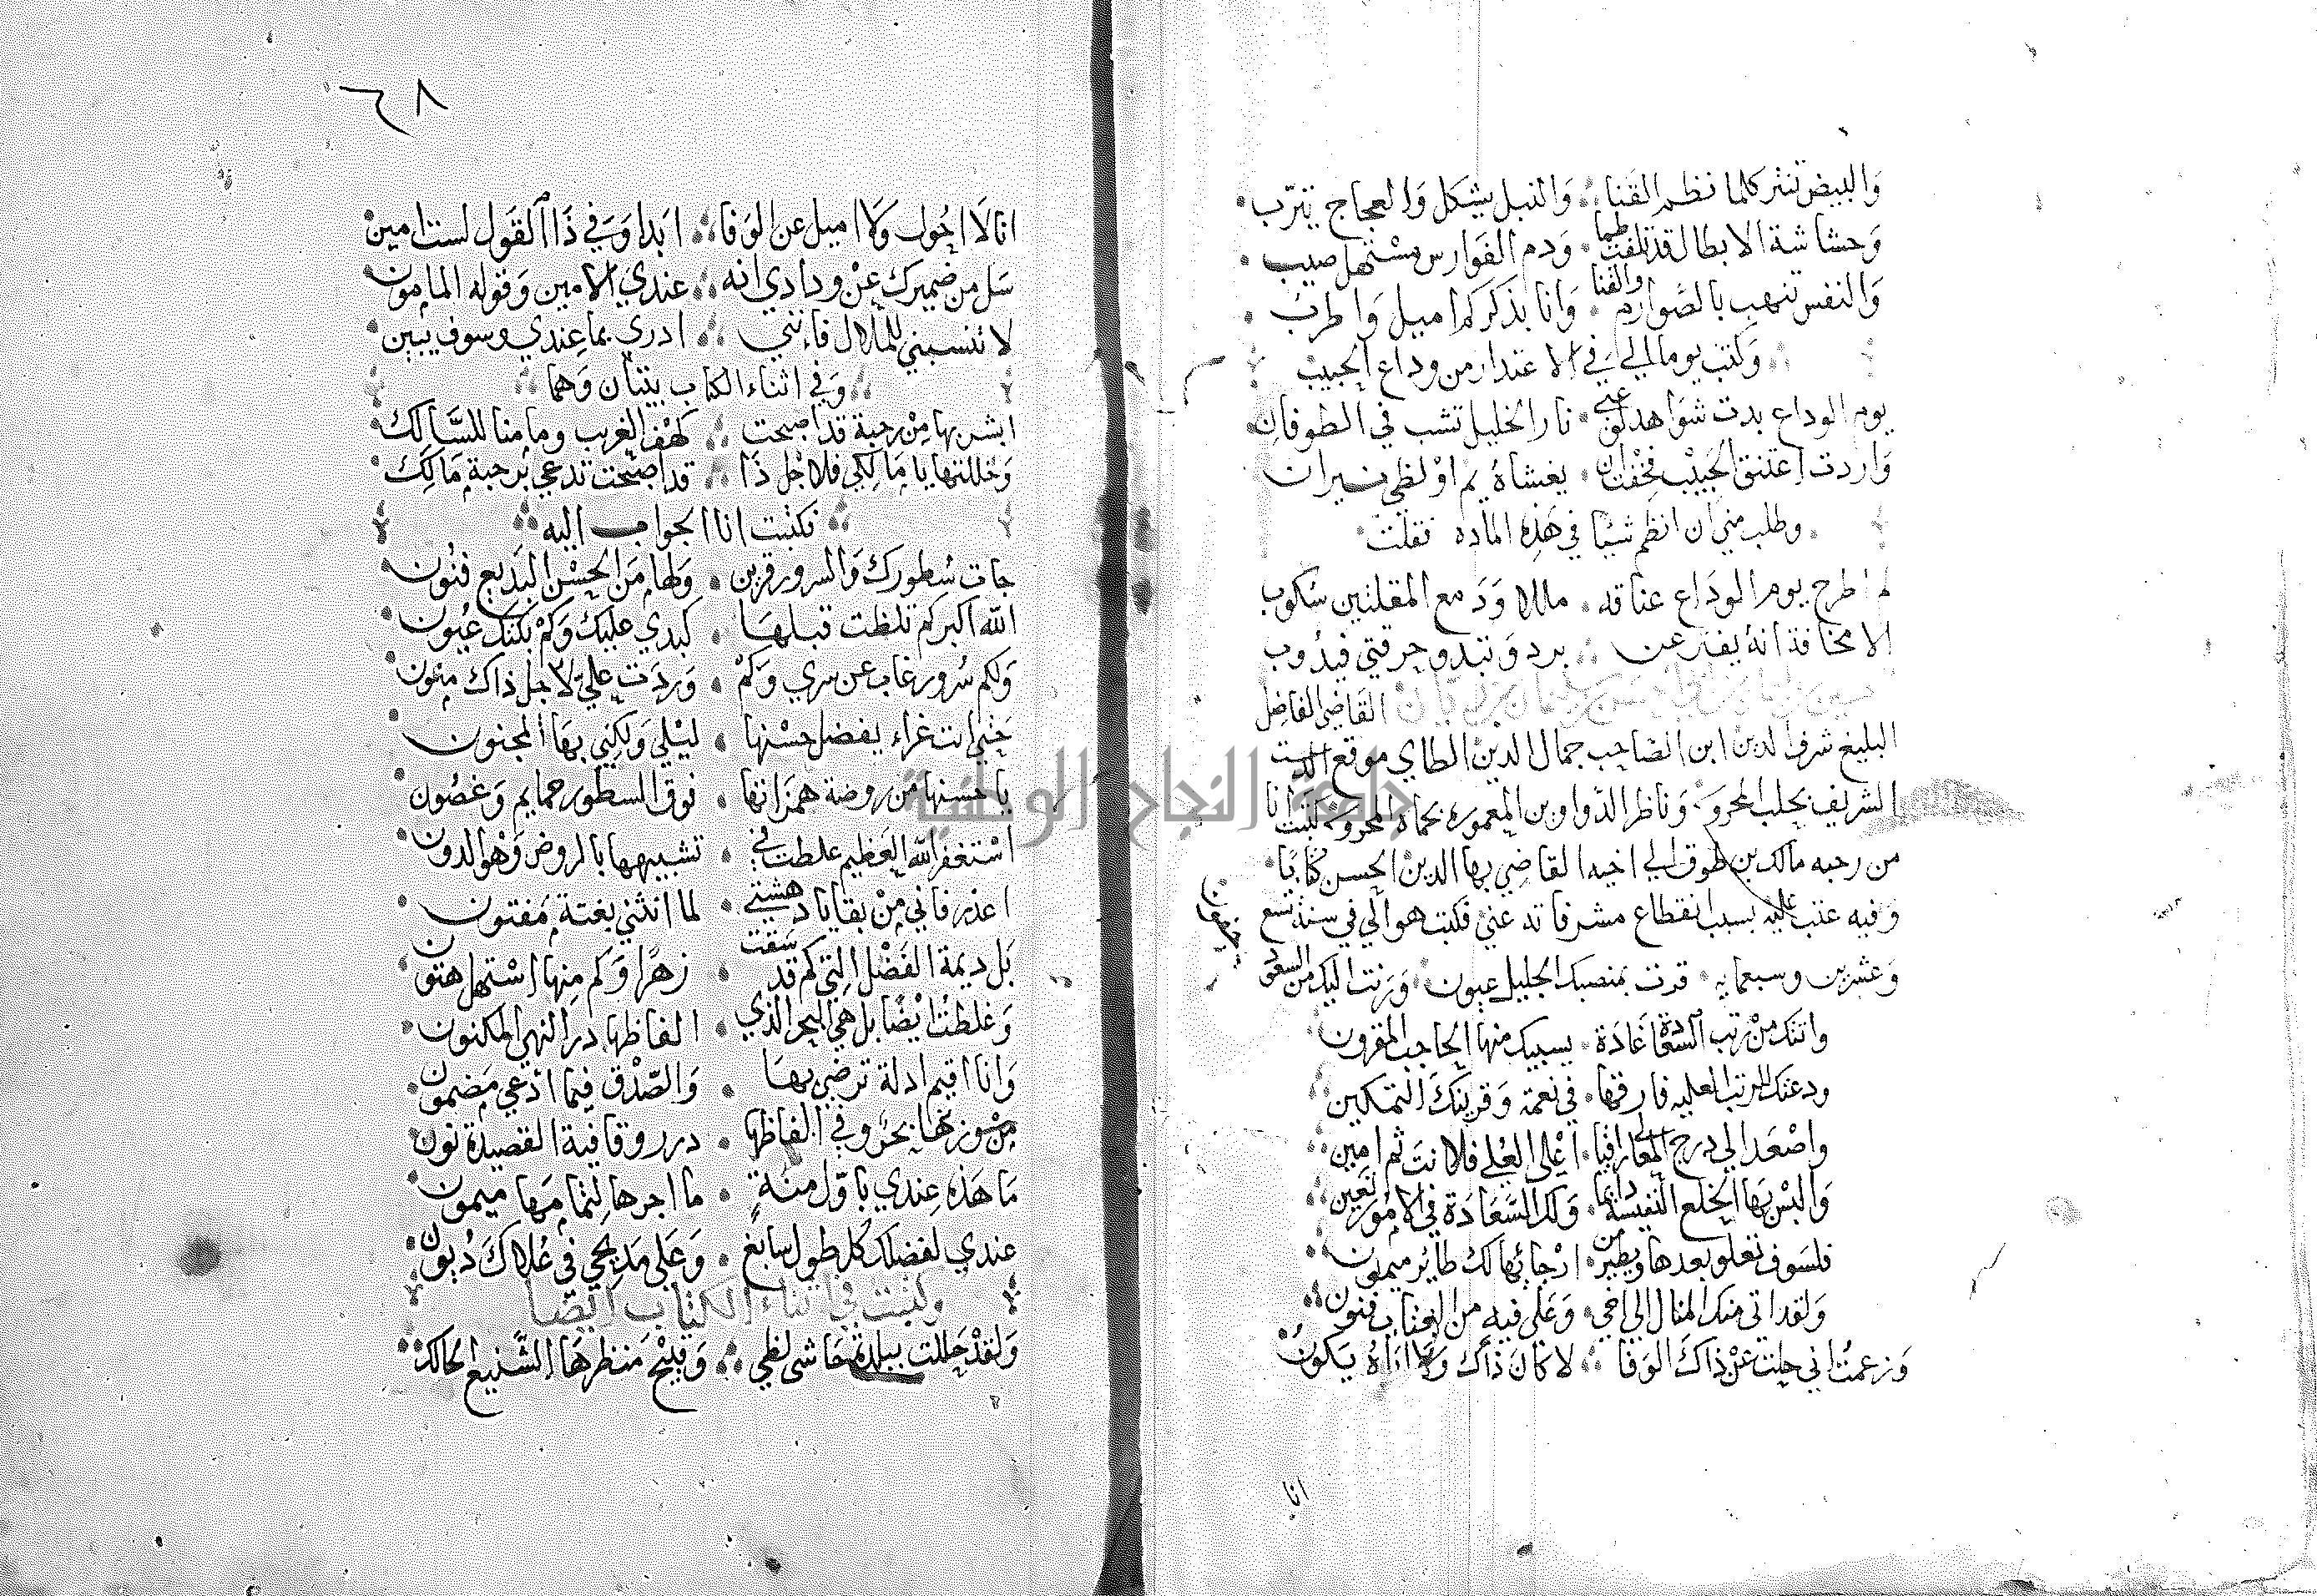 وَالبيض تنثر كلما نظم القَنا وَالنبل يشكل وَالعجاج يترّب
وَحشاشة الابطال قد تلفت ظما وَدم الفَوارس مسْتهل صيب
وَالنفس تنهب بالصَّوارم والقنا وَانا بذكركم اميل وَاطربُ
وَكتب يوما الي يَ في الاعتذار من وداع الحبيب
يوم الوداع بدت شوَاهد لوعتي نار الخليل تشب في الطوفان
وَاردت اعتنق الحبيْب فخفْت ان يغشاهُ يم اوْ لظى نيران
وطلب مني ان انظم شيئا في هَذه الماده فقلت
لم اطرح يوم الوَداع عناقه مللا وَدمع المقلتين سَكوب
الا مخافة انهُ يفتر عن برد وَتبدو حرقتي فيذُوب
القَاضي الفاضِل
البليغ شرف الدين ابن الصَاحب جمال الدين الطاي موقع الدست
الشريف بحلب المحروَسة وَناظر الدّواوين المعموره بحماه المحروسَة كتبت انا
من رحبه مالك بن طوق الي اخيه القاضِي بها الدين الحسن كتابًا
وَفيه عتب عليه بسبب انقطاع مشرفاته عني فكتب هو الي في سنة تسع
وَعشرين وسبعمايه قرت بمنصبك الجليل عيون وَرنت اليك من السعود جفون
واتتك منْ رتب السعَادة غَادة يسبيك منها الحاجب المقرون
ودعتك للرتب العليه فارقها في نعمة وَقرينكَ التمكين
واصْعَد الي درج المعالي راقيا اعْلى العُلى فلانتَ ثم امين
وَالبسْ بهَا الخلع النفيسَة دايما وَلك السَّعَادَة في الامُور تعين
فلسَوف تعلو بعدها ويطير من ارْجائها لكَ طائر ميمون
وَلقد اتى منك المثال الي اخي وَعَلى فيه من العتاب فنون
وَزعمتُ اني حلت عنْ ذاكَ الوَفا لا كانَ ذاك وَلا ارَاهُ يَكونُ
انا
٦٨
انا لَا احُول وَلا اميل عن الوَفا ابدا وَفي ذَا القَول لست امين
سَل من ضميرك عنْ ودادي انه عندي الامين وَقوله المامون
لا تنسبني للملال فانني ادرى بما عِندي وسوف يبين
وَفي اثناء الكتاب بيتان وَهما
ابشر بها منْ رحبة قد اصبحت كهْف الغريب ومامنا للسَّالك
وَحللتها يا مَالكي فلاجْل ذَا قد اصْبحت تدعى برحبة مَالك
فكتبت انا الجواب اليه
جات سُطورك وَالسرور قرين وَلها منَ الحسْن البَديع فنُون
الله اكبر كم تلظت قبلهَا كبدي عليك وَكمْ بكتك عُيون
وَلكم سُرور غاب عن سري وَكمْ وَردَت عليَّ لاجل ذاك منُون
حَتى اتت غراء يفضل حسْنها ليْلى وَلكني بهَا المجنون
يا حسنها من روضة همزاتها فوق السطور حمايم وَغصُون
اسْتغفر الله العَظيم غلطت في تشبيهها بالروض وَهو الدون
اعذر فاني منْ بقايا دهشتي لما انثني بغتة مَفتون
بَل ديمة الفَضْل التي كم قد سَقت زهرًا وَكم منها اسْتهل هتون
وَغلطتُ ايْضًا بل هيَ البحر الذي الفاظها در النهي المكنون
وَانا اقيم ادلة ترضى بهَا وَالصّدْق فيما ادعي مَضمون
منْ وزنها بحرُ وفي الفاظها درر وقافية القصيدة نون
مَا هَذه عِندي باوّل منَةٍ ما اجرها لثمامهَا ميمون
عندي لفضلك كل طول سابغ وَعَلى مَديحي في عُلاكَ دُيون
وَكتبت في اثناء الكتاب ايضا
وَلقدْ حَللت ببلدة حَاشى لظى وَقبيْح مَنظرهَا الشّنيع الحالك